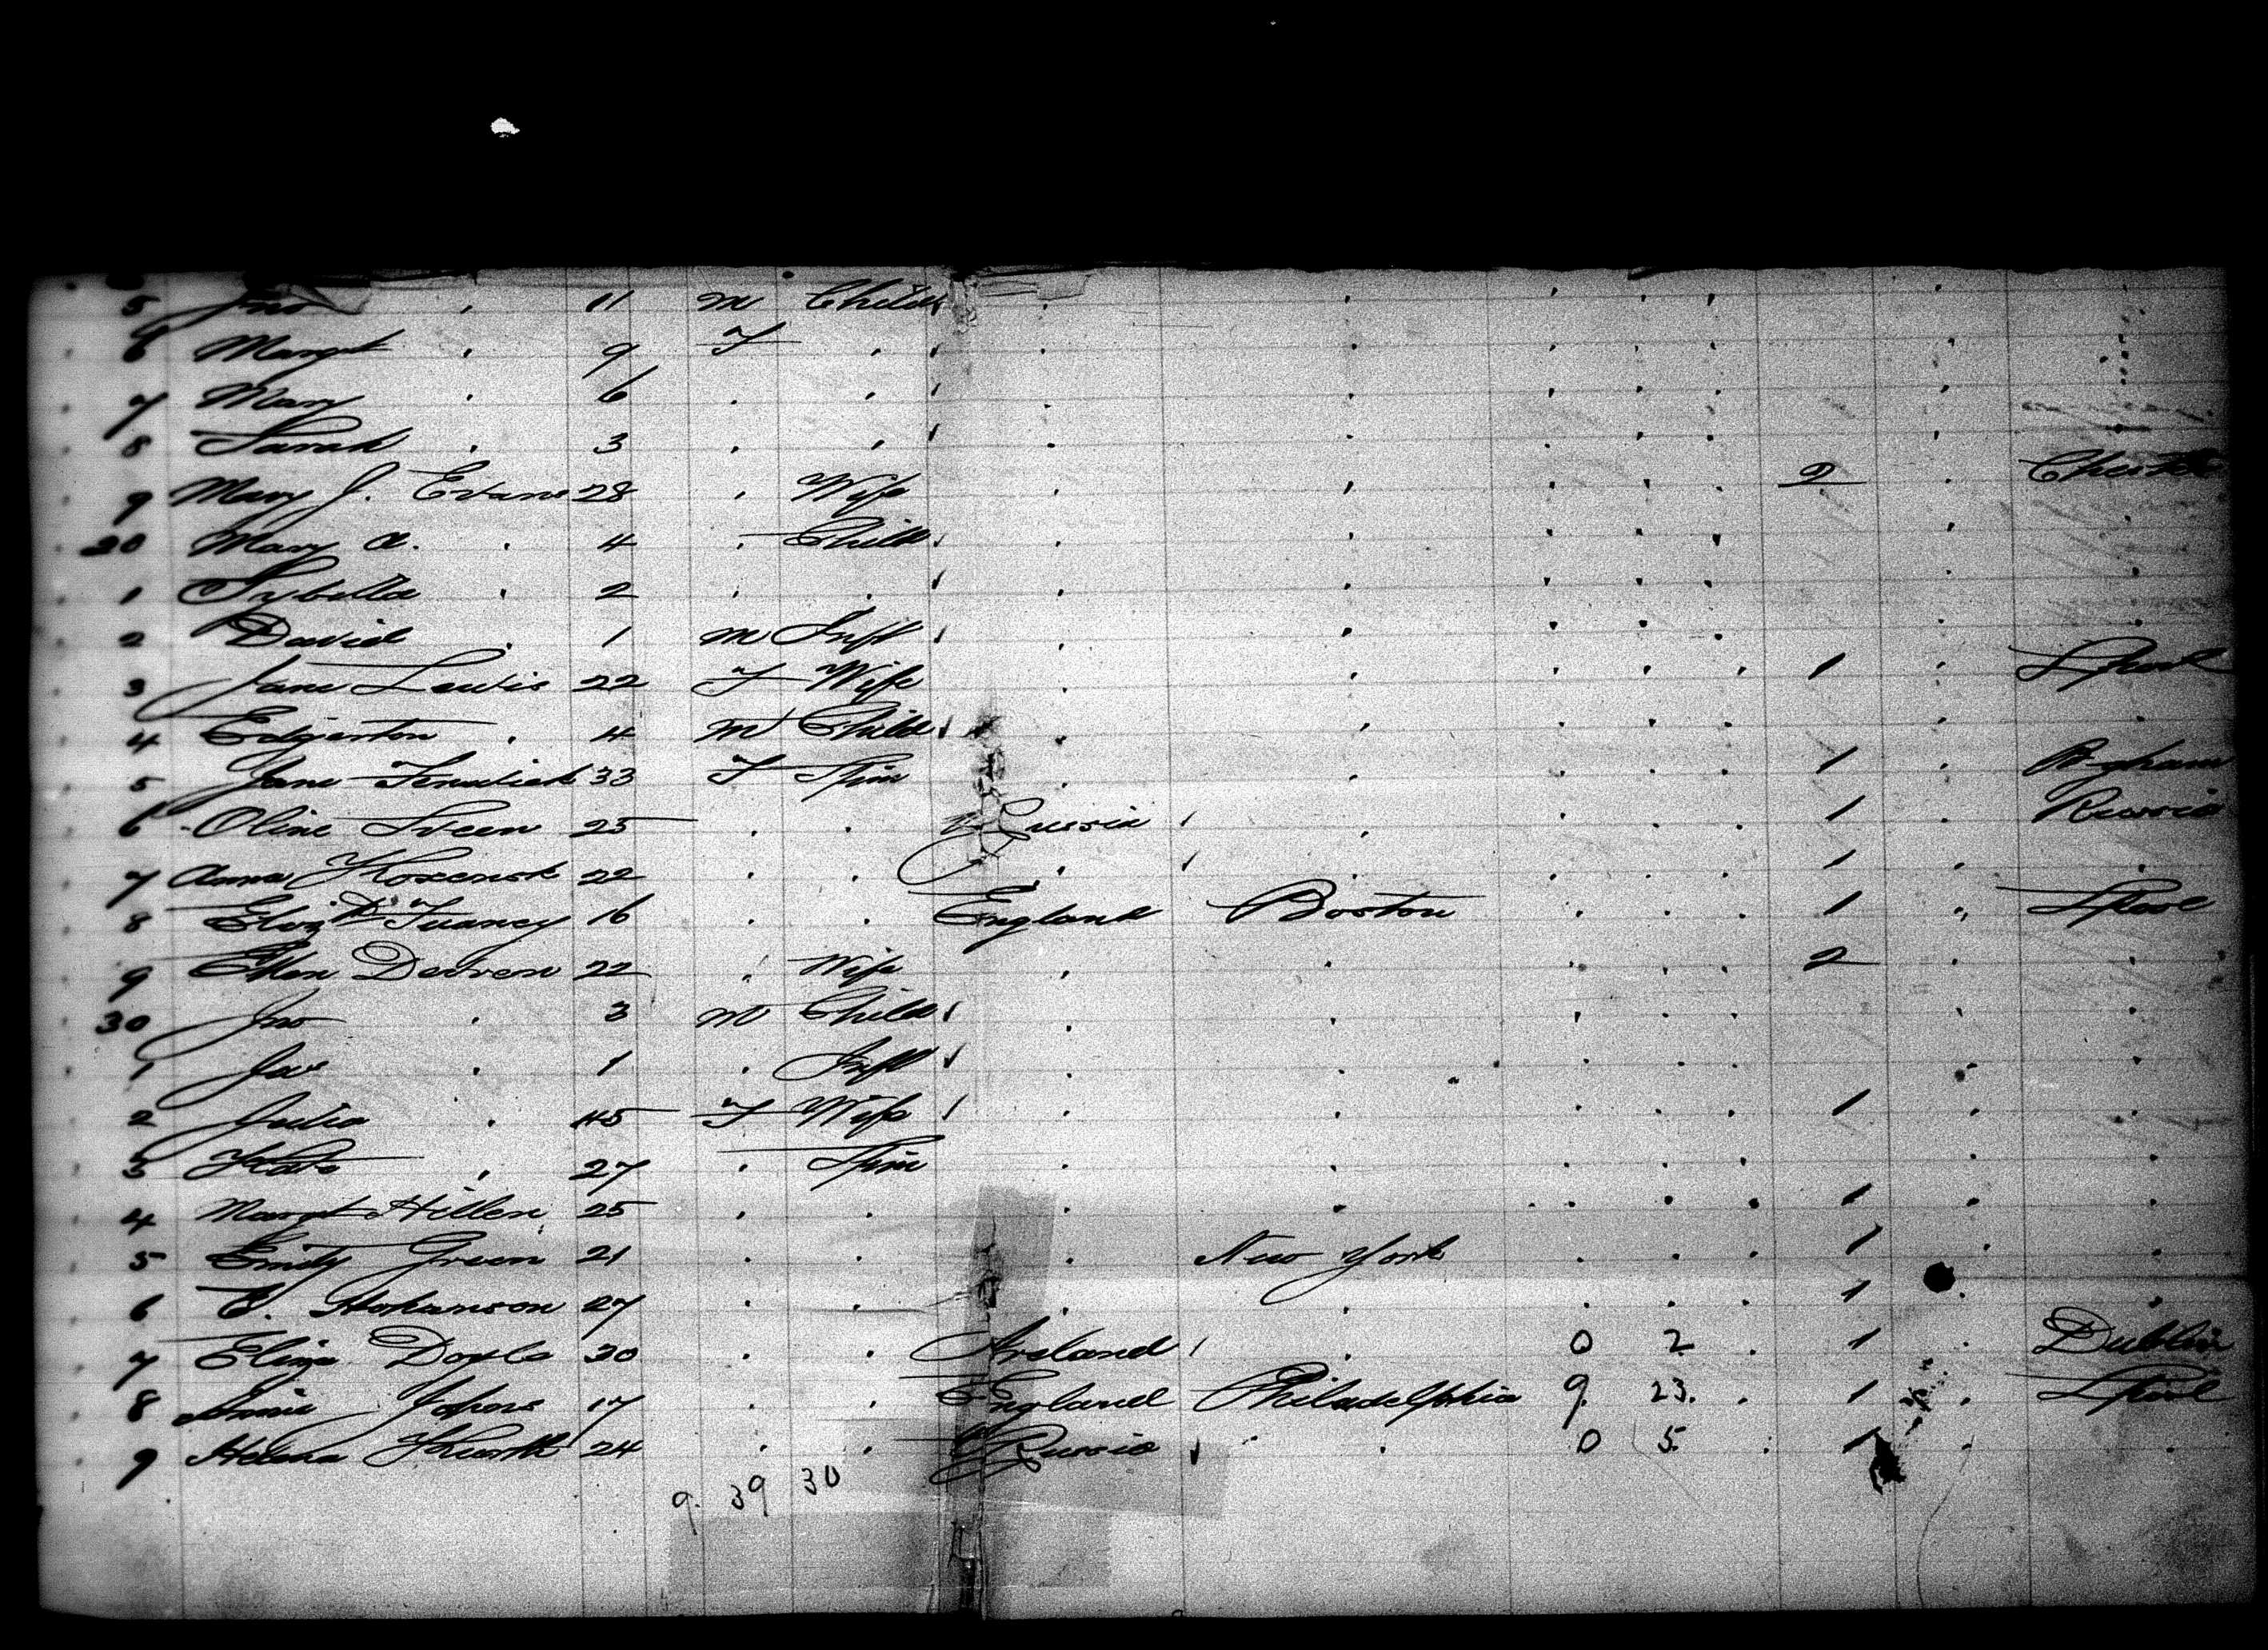 5 Jno 11 m Child
6 Margt 9 F
7 Mary 6
8 Sarah 3
9 Mary J. Evans 28 Wife 2
20 Mary A. 4 Child
1 Sybella 2
2 David 1 m Inft
3 Jane Lewis 22 F Wife 1 Lpool
4 Edgerton 4 m Child
5 Jane Fenwick 33 F Spin 1 B-gham
6 Oline Sveen 25 Russia 1 Russia
7 Anna 22 1
8 Elizth 16 England Boston 1 Lpool
9 Ellen 22 Wife 2
30 Jno 3 m Child
1 Jas 1 Inft
2 Julia 45 F Wife 1
3 Kate 27 Spin
4 Margt Hillen 25 1
5 Emily Green 21 New York 1
6 E. 27 1
7 Eliza Doyle 30 Ireland 0 2 1 Dublin
8 Annie 17 England Philadelphia 9 23 1 Lpool
9 Helena 24 Russia 0 5 1
9. 39 30